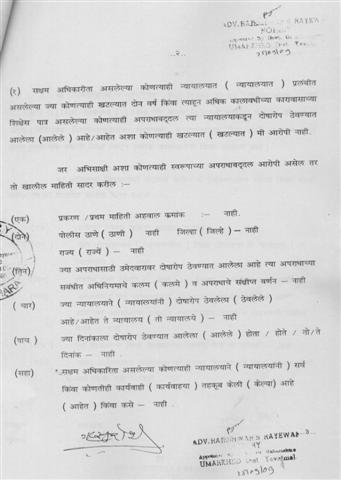 ADV. RAJESHWAR S RAYEWAR
UMARKHED Dist. Yavatmal
२
(१) सक्षम अधिकारीता असलेल्या कोणत्याही न्यायालयात ( न्यायालयात ) प्रलंबीत
असलेल्या ज्या कोणत्याही खटल्यात दोन वर्ष किंवा त्याहून अधिक कालावधीच्या कारावासाच्या
शिक्षेस पात्र असलेल्या कोणत्याही अपराधाबद्दल त्या न्यायालयाकडून दोषारोप ठेवण्यात
आलेला (आलेले ) आहे/आहेत अशा कोणत्याही खटल्यात ( खटल्यात ) मी आरोपी नाही.
जर अभिसाक्षी अशा कोणत्याही स्वरूपाच्या अपराधाबद्दल आरोपी असेल तर
तो खालील माहिती सादर करील :–
(एक) प्रकरण /प्रथम माहिती अहवाल कमांक :– नाही.
(दोन) पोलीस ठाणे ( ठाणी ) नाही जिल्हा ( जिल्हे ) – नाही
राज्य ( राज्ये ) – नाही
(तिन) ज्या अपराधासाठी उमेदवारावर दोषारोप ठेवण्यात आलेला आहे त्या अपराधाच्या
सबंधीत अधिनियमाचे कलम ( कलमे ) व अपराधाचे संक्षीप्त वर्णन – नाही
( चार ) ज्या न्यायालयाने ( न्यायालयांनी ) दोषारोप ठेवलेला ( ठेवलेले )
आहे/आहेत ते न्यायालय ( ती न्यायालये ) – नाही
( पाच ) ज्या दिनांकाला दोषारोप ठेवण्यात आलेला ( आलेले ) होता / होते / तो/ते
दिनांक – नाही.
(सहा) सक्षम अधिकारिता असलेल्या कोणत्याही न्यायालयाने ( न्यायालयांनी ) सर्व
किंवा कोणतीही कार्यवाही ( कार्यवाहया ) तहकूब केली ( केल्या ) आहे
( आहेत ) किंवा कसे – नाही .
ADV. RAJESHWAR S RAYEWAR
UMARKHED Dist. Yavatmal